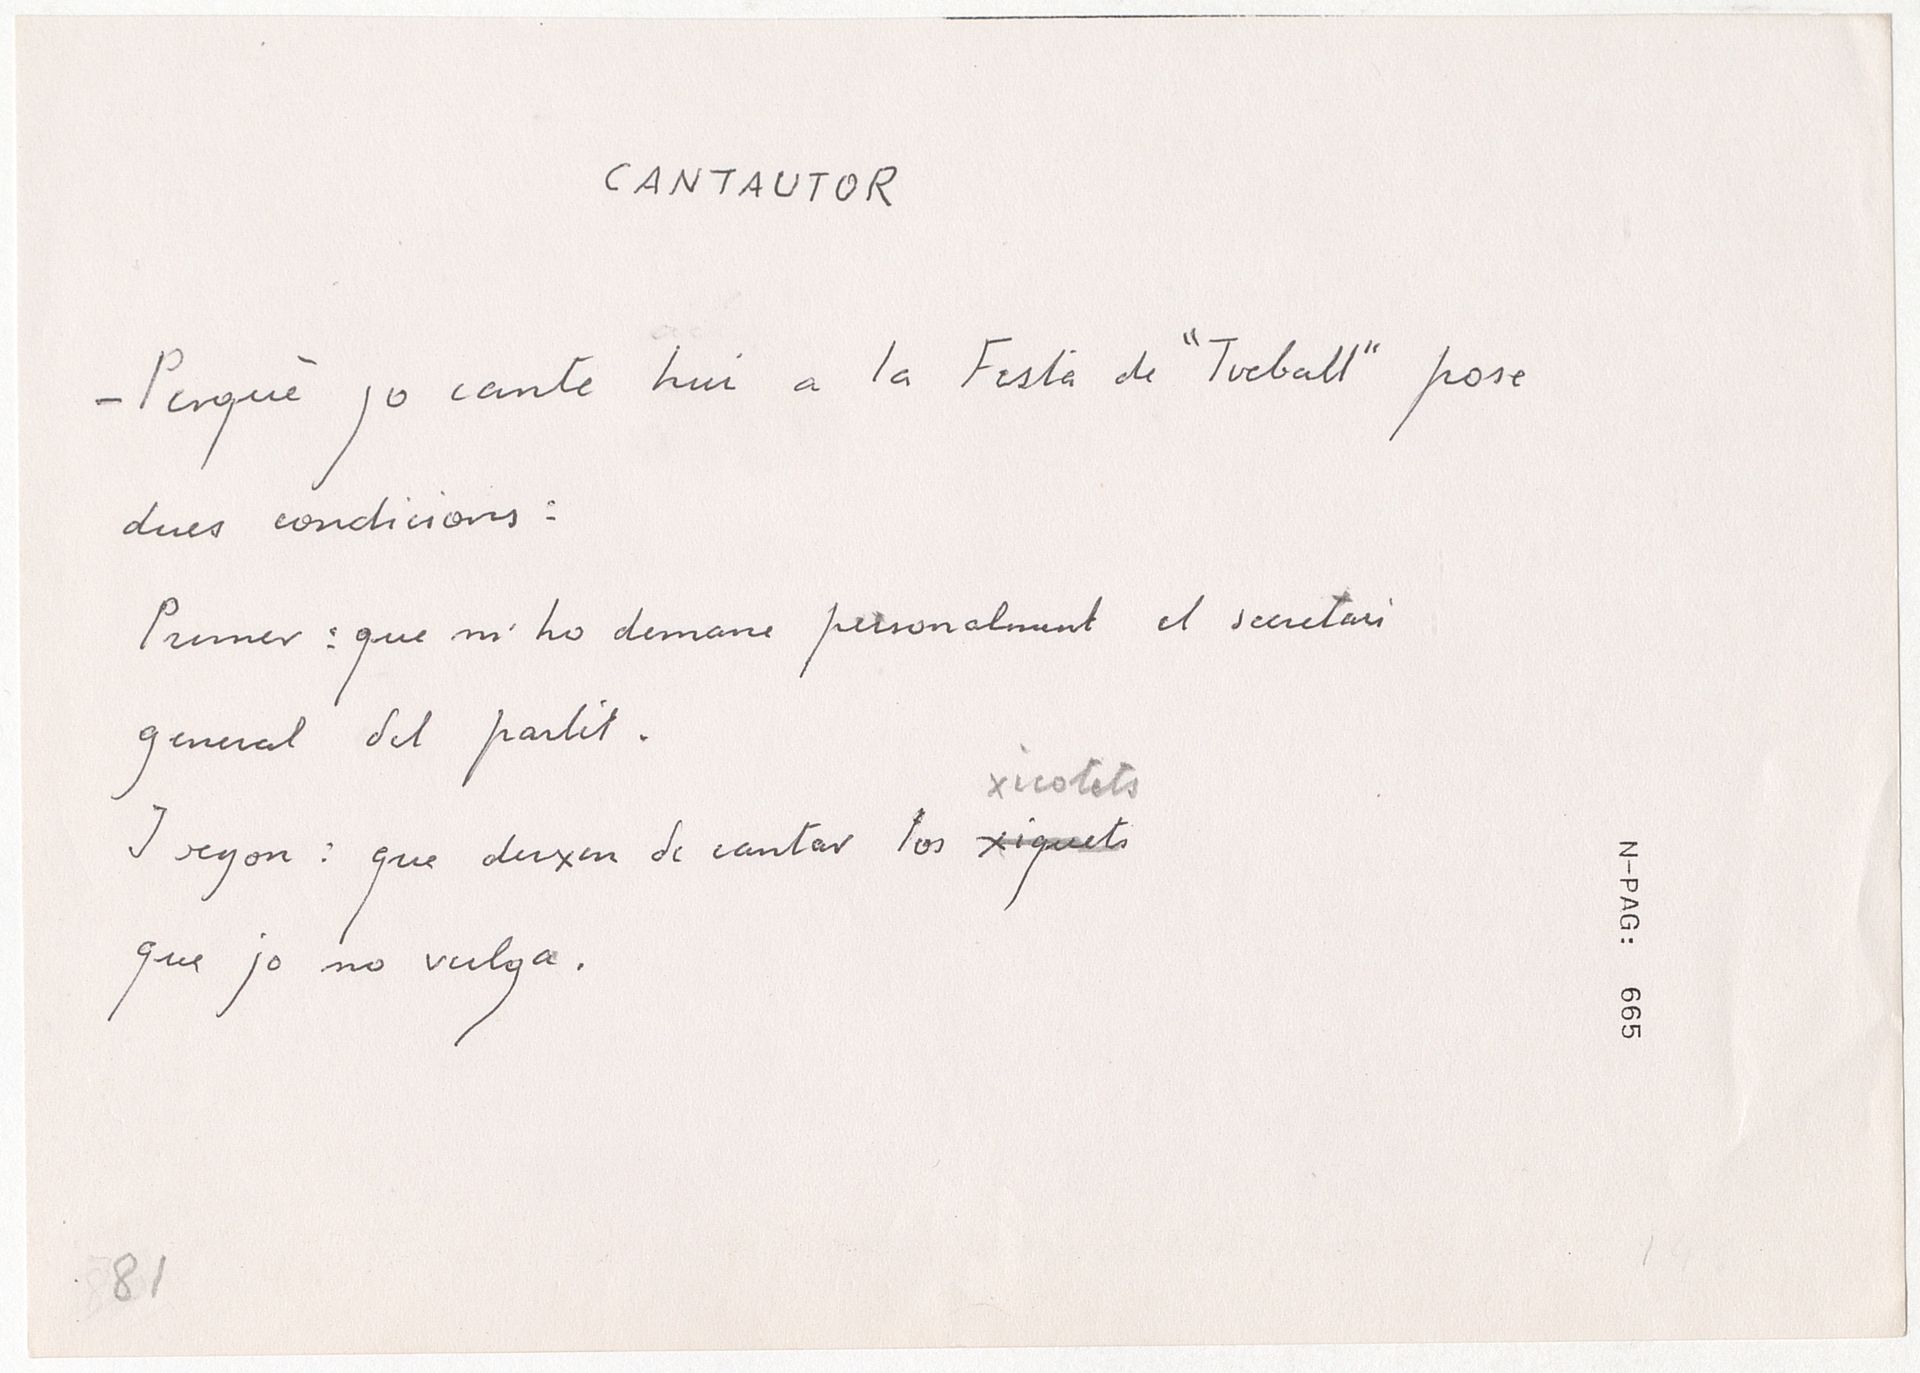 CANTAUTOR
- Perquè jo cante hui a la Festa de "Treball" pose
dues condicions :
Primer : que m'ho demane personalment el secretari
general del partit .
xicotets
I segon : que deixen de cantar los xiquets
que jo no vulga .
N-PAG: 665
81